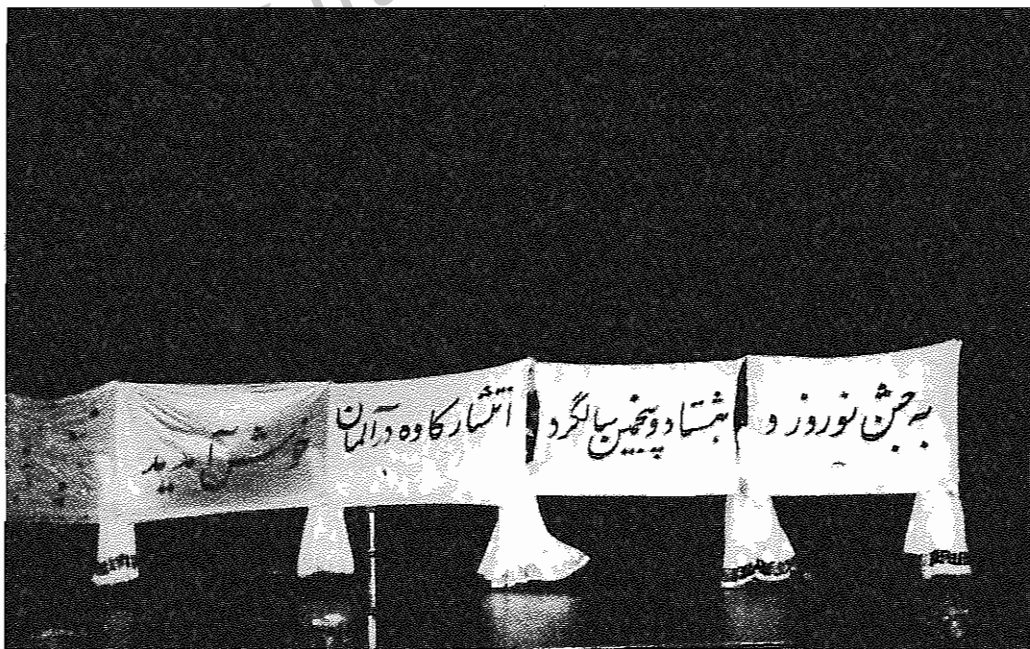 به جشن نوروز و هشتاد و پنجمین سالگرد انتشار کاوه در آلمان خوش آمدید